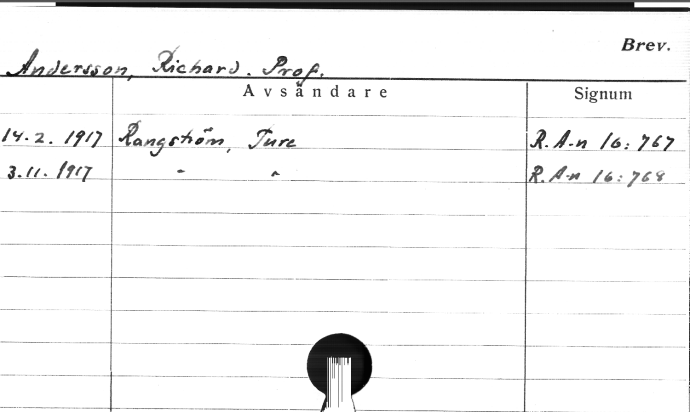 Brev.
Andersson, Richard. Prof.
Avsändare Signum
14.2.1917 Rangström, Ture R.A-n 16:767
3.11.1917 - " - R.A-n 16:768